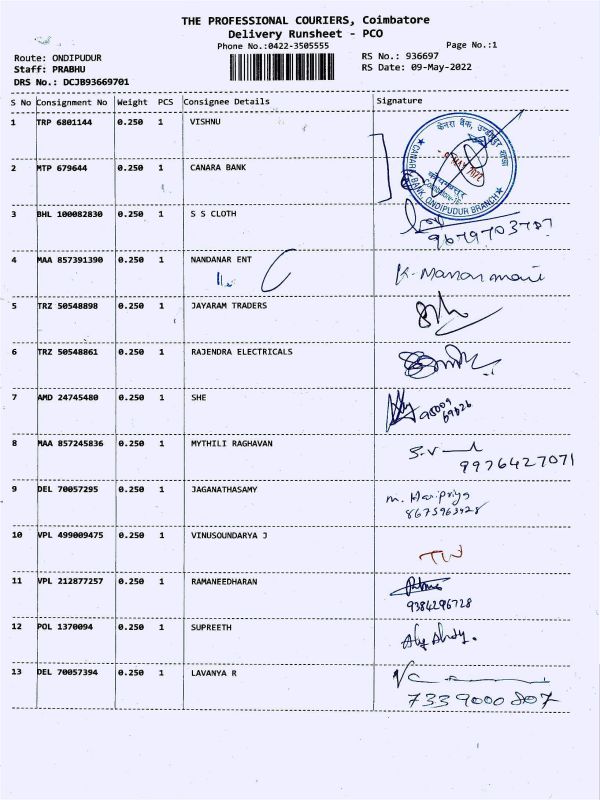 THE PROFESSIONAL COURIERS, Coimbatore
Delivery Runsheet - PCO
Phone No.:0422-3505555
Page No.:1
Route: ONDIPUDUR
RS No.: 936697
Staff: PRABHU
RS Date: 09-May-2022
DRS No.: DCJB93669701
S No Consignment No Weight PCS Consignee Details Signature
1 TRP 6801144 0.250 1 VISHNU
केनरा बैंक,
CANARA BANK, ONDIPUDUR BRANCH
2 MTP 679644 0.250 1 CANARA BANK
3 BHL 100082830 0.250 1 S S CLOTH
9679703787
4 MAA 857391390 0.250 1 NANDANAR ENT
5 TRZ 50548898 0.250 1 JAYARAM TRADERS
6 TRZ 50548861 0.250 1 RAJENDRA ELECTRICALS
7 AMD 24745480 0.250 1 SHE
8 MAA 857245836 0.250 1 MYTHILI RAGHAVAN
S.V
9976427071
9 DEL 70057295 0.250 1 JAGANATHASAMY
m. Haripriya
8675963928
10 VPL 499009475 0.250 1 VINUSOUNDARYA J
11 VPL 212877257 0.250 1 RAMANEEDHARAN
9384296728
12 POL 1370094 0.250 1 SUPREETH
13 DEL 70057394 0.250 1 LAVANYA R
7339000807